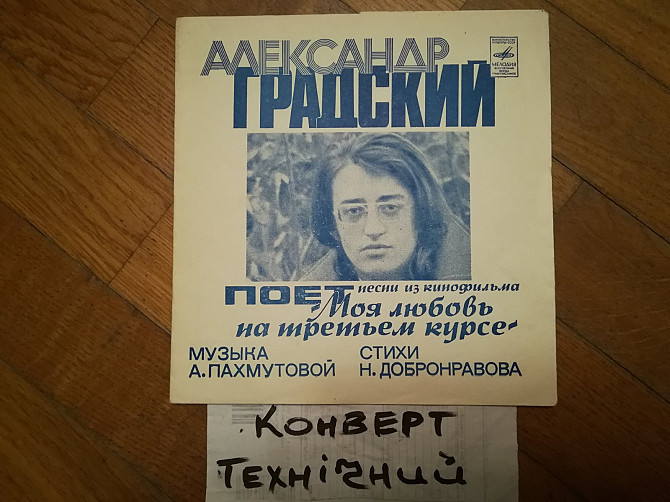 АЛЕКСАНДР
ГРАДСКИЙ
МЕЛОДИЯ
ПОЕТ песни из кинофильма
«Моя любовь
на третьем курсе»
МУЗЫКА СТИХИ
А. ПАХМУТОВОЙ Н. ДОБРОНРАВОВА
КОНВЕРТ
ТЕХНІЧНИЙ